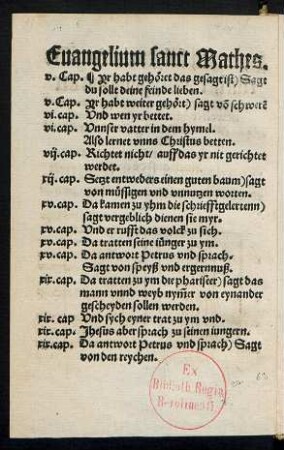 Euangelium sanct Mathes.
v. Cap. ¶ Yr habt gehört das gesagt ist) Sagt
du solt deine feinde lieben.
v. Cap. Yr habt weiter gehört) sagt võ schwerẽ
vi. cap. Und wen yr bettet.
vi. cap. Unnser vatter in dem hymel.
Also lernet vnns Christus betten.
vij. cap. Richtet nicht/ auff das yr nit gerichtet
werdet.
xij. cap. Setzt entweders einen guten baum) sagt
von müssigen vnd vnnutzen worten.
xv. cap. Da kamen zu yhm die schrifftgelertenn)
sagt vergeblich dienen sie myr.
xv. cap. Und er rufft das volck zu sich.
xv. cap. Da tratten seine iünger zu ym.
xv. cap. Da antwort Petrus vnd sprach.
Sagt von speyß vnd ergernuß.
xix. cap. Da tratten zu ym die phariser) sagt das
mann vnnd weyb nym̃er von eynander
gescheyden sollen werden.
xix. cap Und sych eyner trat zu ym vnd.
xix. cap. Jhesus aber sprach zu seinen iungern.
xix. cap. Da antwort Petrus vnd sprach) Sagt
von den reychen.
Ex
Biblioth. Regia
Berolinensi